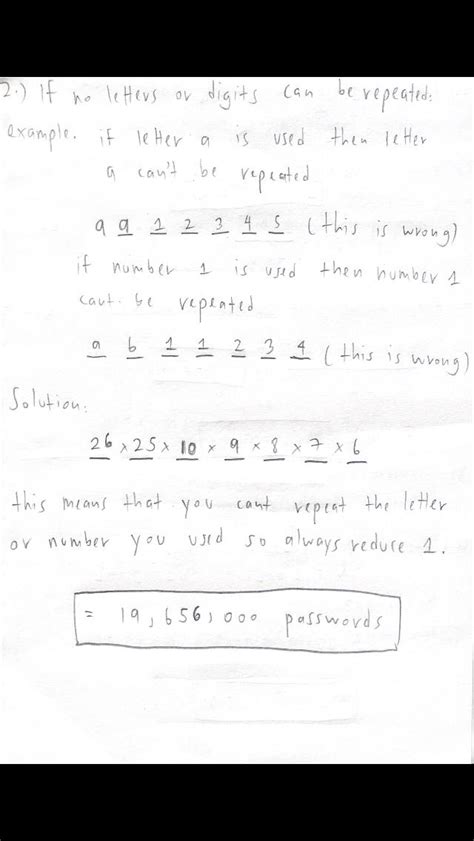 2.) If no letters or digits can be repeated:
example. if letter a is used then letter
a can't be repeated
a a 1 2 3 4 5 (this is wrong)
if number 1 is used then number 1
cant be repeated
a b 1 1 2 3 4 (this is wrong)
Solution:
26 x 25 x 10 x 9 x 8 x 7 x 6
this means that you cant repeat the letter
or number you used so always reduce 1.
= 19,656,000 passwords